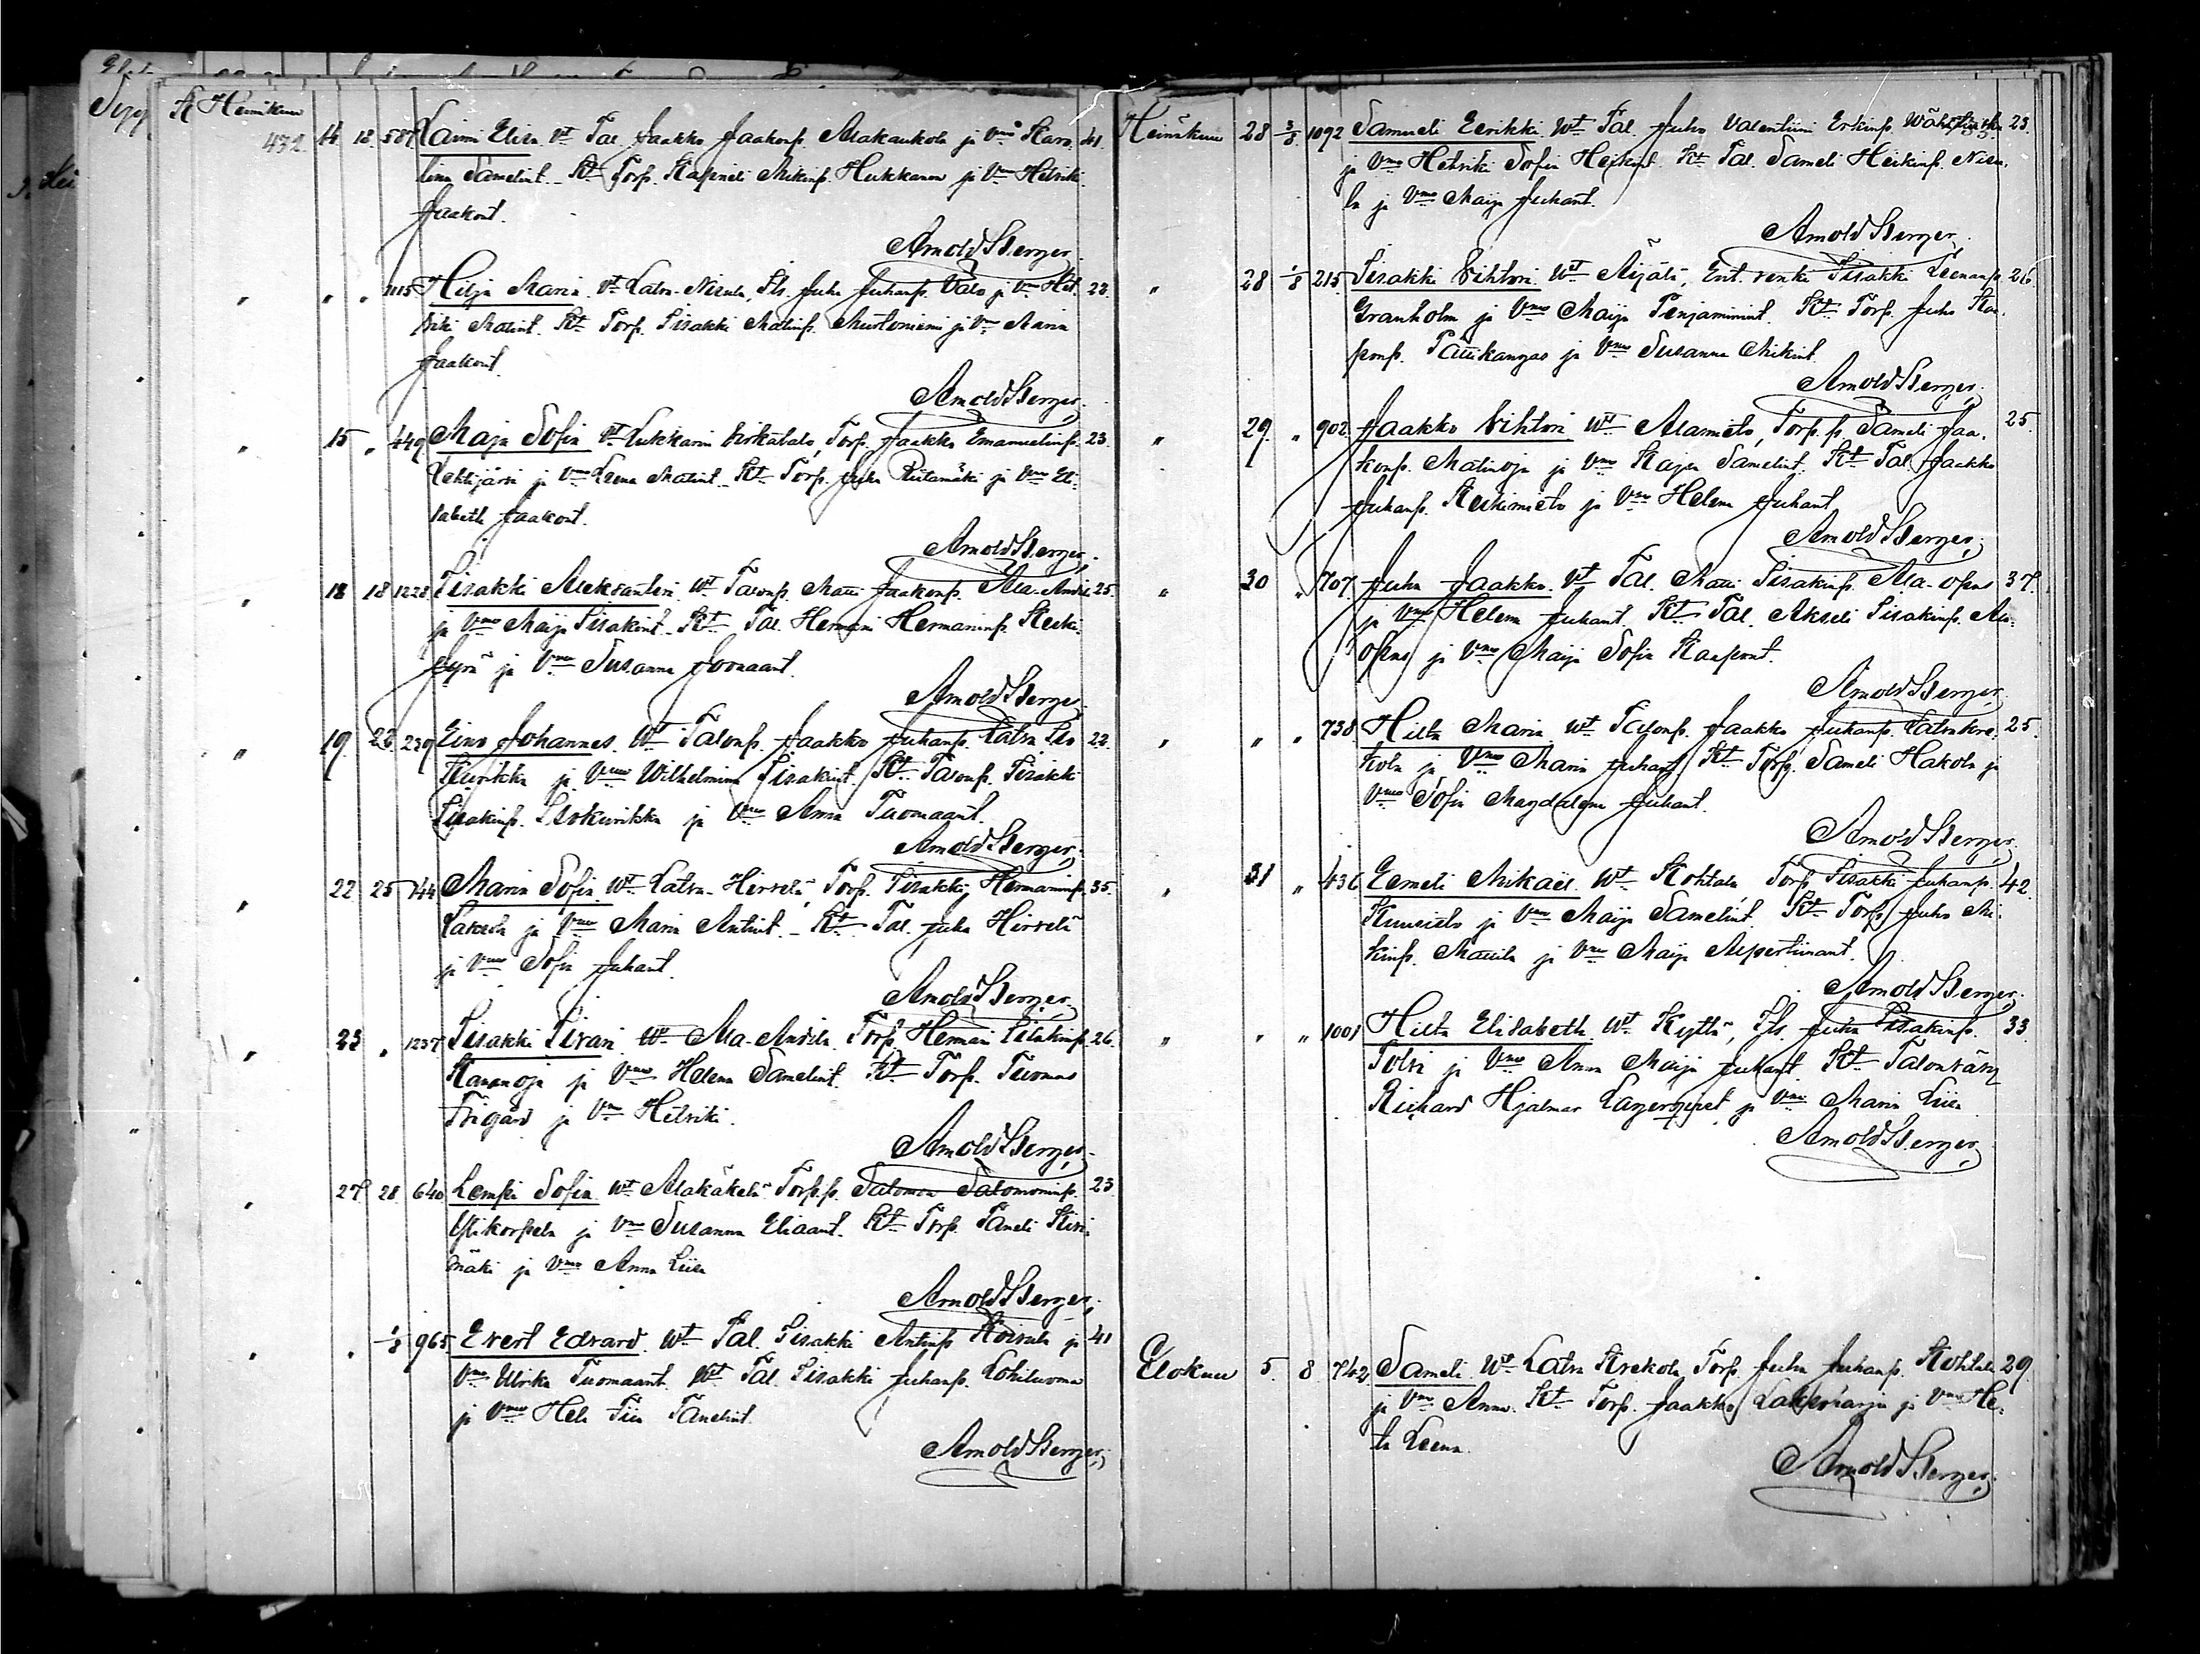 Heinäkuu
432. 14. 18. 587 Laimi Elisa. Vt Tal. Jaakko Jaakonp. Alakaukola ja Vmo Karo- 41
lina Samelint. Kt Torp. Kasineli Mikinp. Heikkanen ja Vmo Hetviki
Jaakont.
Arnold Berger.
" " " 1115 Hilja Maria. Vt Latva-Nisula, Its. Juha Juhanp. Valo ja Vmo Het- 22.
viki Matint. Kt Torp. Iisakki Matinp. Mustoniemi ja Vmo Maria
Jaakont.
Arnold Berger.
" 15 " 449 Maja Sofia Vt Lukkarin virkatalo, Torp. Jaakko Emanuelinp. 23.
Lehtijärvi ja Vmo Leena Matint. Kt Torp. Juha Riitamäki ja Vmo Eli-
sabeth Jaakont.
Arnold Berger.
" 18 18 1228 Iisakki Aleksanteri. Wt Talonp. Matti Jaakonp. Ala-Andila 25.
ja Vmo Maija Iisakint. Kt Tal. Hermanni Hermaninp. Keski-
Jyrä ja Vmo Susanna Joonaant.
Arnold Berger.
" 19. 22. 239 Eino Johannes. Wt Talonp. Jaakko Juhanp. Latva Iso 22.
Kurikka ja Vmo Wilhelmina Iisakint. Kt Talonp. Iisakki
Iisakinp. Isokurikka ja Vmo Anna Tuomaant.
Arnold Berger.
" 22 25 744 Maria Sofia. Wt Latva-Hirvelä, Torp. Iisakki Hermaninp. 35.
Lakula ja Vmo Maria Antint. Kt Tal. Juha Hirvelä
ja Vmo Sofia Juhant.
Arnold Berger.
" 23 " 1237 Iisakki Iivari. Wt Ala-Andila. Torp. Hermani Iisakinp. 26.
Kananoja ja Vmo Helena Samelint. Kt Torp. Tuomas
Frigård ja Vmo Hetviki.
Arnold Berger.
" 27. 28. 640 Lempi Sofia. Wt Alakäkelä Torp.p. Salomon Salomoninp. 23
Ylikorpela ja Vmo Susanna Eliaant. Kt Torp. Taneli Kivi-
mäki ja Vmo Anna Liisa
Arnold Berger.
" " 1/8 965 Evert Edvard. Wt Tal. Iisakki Antinp. Koivula ja 41
Vmo Ulrika Tuomaant. Kt Tal. Iisakki Juhanp. Lohiluoma
ja Vmo Hele Tiia Tanelint.
Arnold Berger.
Heinäkuu 28 3/8 1092 Samueli Eerikki Wt Tal. Juho Valentiini Erkinp. 23.
ja Vmo Hetviki Sofia Heikint. Kt Tal. Sameli Heikinp. Nisu-
la ja Vmo Maija Juhant.
Arnold Berger.
" 28 1/8 215 Iisakki Vihtori. Wt Äijälä, Ent. renki Iisakki Leenanp. 26.
Granholm ja Vmo Maija Penjaminint. Kt Torp. Juho Kaa-
ponp. Pattikangas ja Vmo Susanna Mikint.
Arnold Berger.
" 29. " 902 Jaakko Vihtori Wt Alamieto, Torp.p. Sameli Jaa- 25.
konp. Matinoja ja Vmo Kajsa Samelint. Kt Tal. Jaakko
Juhanp. Keskimieto ja Vmo Helena Juhant
Arnold Berger.
" 30 " 707 Juha Jaakko. Vt Tal. Matti Iisakinp. Ala-Opas 37.
ja Vmo Helena Juhant. Kt Tal. Akseli Iisakinp. Ala-
Opas ja Vmo Maija Sofia Kaapont.
Arnold Berger.
" " " 738 Hilta Maria Wt Talonp. Jaakko Juhanp. Latvakre- 25.
kola ja Vmo Maria Juhant Kt Torp. Sameli Hakola ja
Vmo Sofia Magdalena Juhant.
Arnold Berger.
" 31 " 436 Eemeli Mikael. Wt Kohtala Torp. Iisakki Juhanp. 42.
Kuusisto ja Vmo Maija Samelint. Kt Torp. Juho Mi-
kinp. Mattila ja Vmo Maija Alpertiinant.
Arnold Berger.
" " " 1001 Hilta Elisabeth. Wt Kyttä, Its. Juha Iisakinp. 33.
Tolvi ja Vmo Anna Maija Juhant. Kt Talonväw
Richard Hjalmar ja Vmo Maria Liisa
Arnold Berger.
Elokuu 5. 8 742 Sameli. Wt Latva Krekola Torp. Juha Juhanp. Kohtala 29.
ja Vmo Anna. Kt Torp. Jaakko Lakeoharju ja Vmo He-
ta Leena.
Arnold Berger.